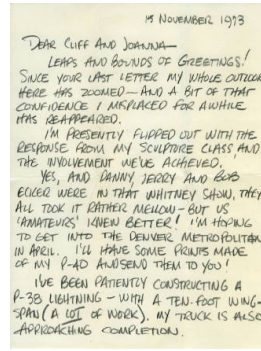 15 NOVEMBER 1973
DEAR CLIFF AND JOANNA—
LEAPS AND BOUNDS OF GREETINGS!
SINCE YOUR LAST LETTER MY WHOLE OUTLOOK
HERE HAS ZOOMED—AND A BIT OF THAT
CONFIDENCE I MISPLACED FOR AWHILE
HAS REAPPEARED.
I'M PRESENTLY FLIPPED OUT WITH THE
RESPONSE FROM MY SCULPTURE CLASS AND
THE INVOLVEMENT WE'VE ACHIEVED.
YES, AND DANNY, JERRY AND BOB
ECKER WERE IN THAT WHITNEY SHOW, THEY
ALL TOOK IT RATHER MELLOW—BUT US
'AMATEURS' KNEW BETTER! I'M HOPING
TO GET INTO THE DENVER METROPOLITAN
IN APRIL. I'LL HAVE SOME PRINTS MADE
OF MY P-40 AND SEND THEM TO YOU!
I'VE BEEN PATIENTLY CONSTRUCTING A
P-38 LIGHTNING—WITH A TEN-FOOT WING-
SPAN (A LOT OF WORK). MY TRUCK IS ALSO
APPROACHING COMPLETION.